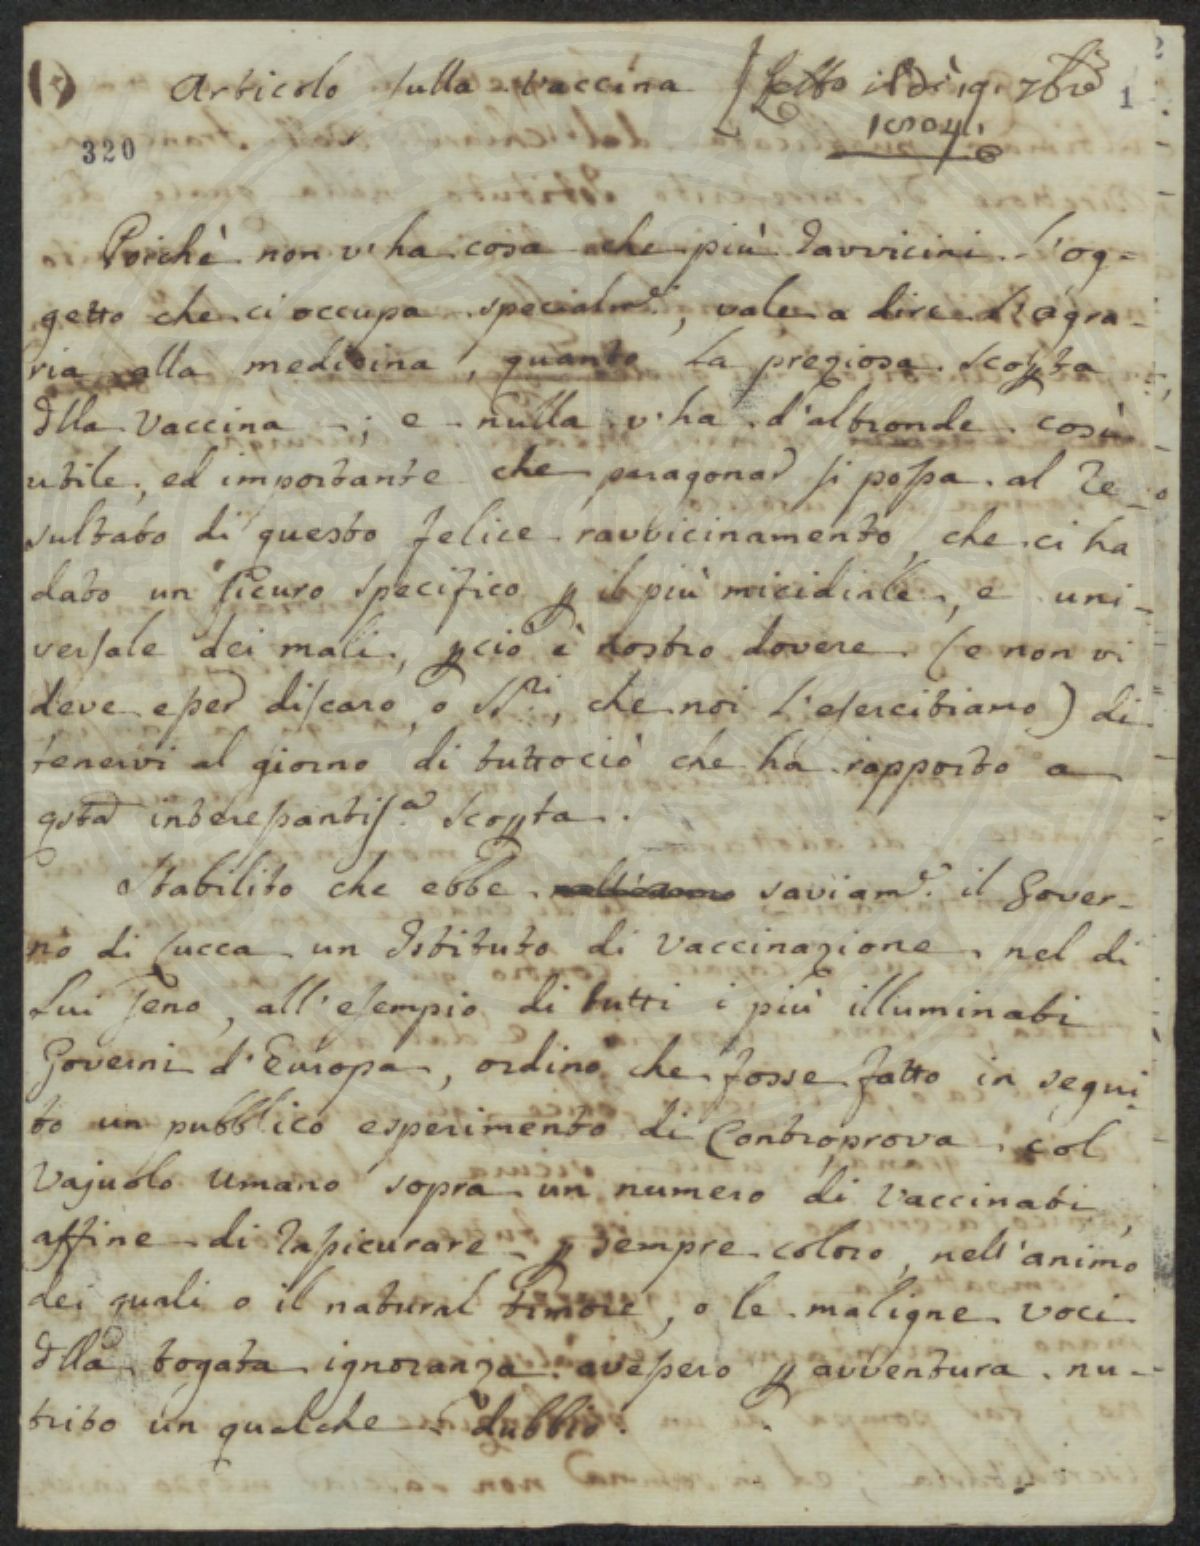 (1)
Articolo sulla vaccina
Letto il dì 19. 7bre
1804.
1
320
Poichè non v'ha cosa che più ravvicini l'og-
getto che ci occupa specialm.e, vale a dire l'agra-
ria alla medicina, quanto la preziosa scopta
dlla Vaccina; e nulla v'ha d'altronde così
utile, ed importante che paragonar si possa al re-
sultato di questo felice ravvicinamento, che ci ha
dato un sicuro specifico p il più micidiale, e uni-
versale dei mali, pciò è nostro dovere (e non vi
deve esser discaro, o SS.ri, che noi l'esercitiamo) di
tenervi al giorno di tuttociò che ha rapporto a
qsta interessantiss.a scopta.
Stabilito che ebbe saviam.e il Gover-
no di Lucca un Istituto di Vaccinazione nel di
Lui seno, all'esempio di tutti i più illuminati
Governi d'Europa, ordinò che fosse fatto in segui-
to un pubblico esperimento di Controprova col
Vajuolo Umano sopra un numero di Vaccinati,
affine di rassicurare p sempre coloro, nell'animo
dei quali o il natural timore, o le maligne voci
dlla togata ignoranza avessero p avventura nu-
trito un qualche dubbio.